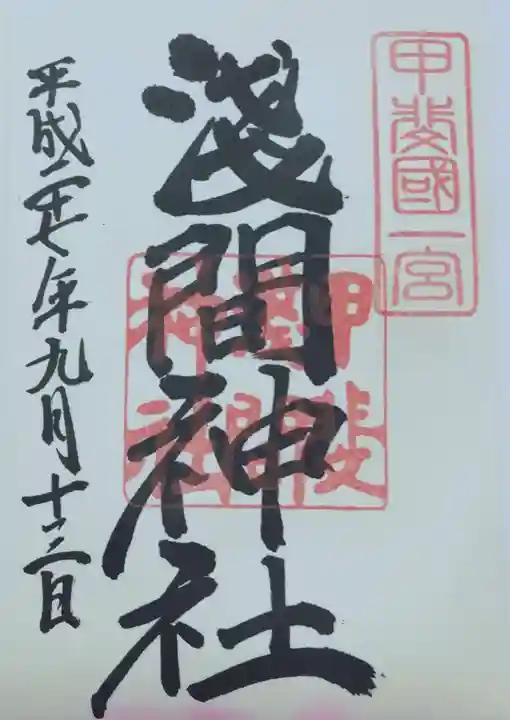 甲斐國一宮
淺間神社
甲斐
淺間
神社
平成二十七年九月十三日